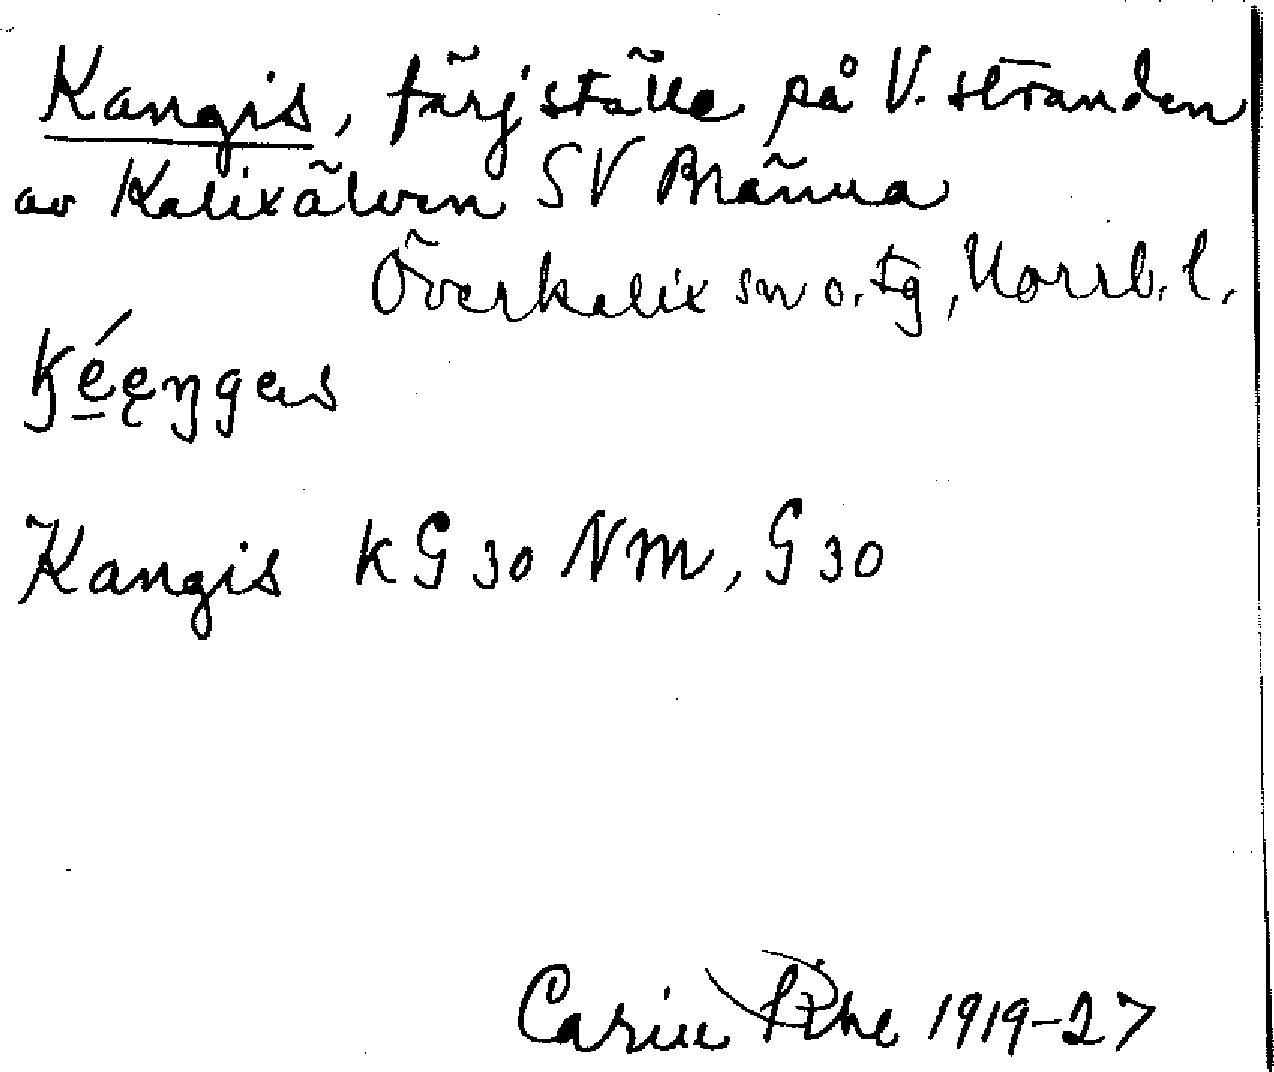 Kangis, färjställe på V. stranden
av Kalixälven SV Brännna
Överkalix sn o. tg, Norrb. l.
Kangis KG30 NM, G30
Carin Pihl 1919-27